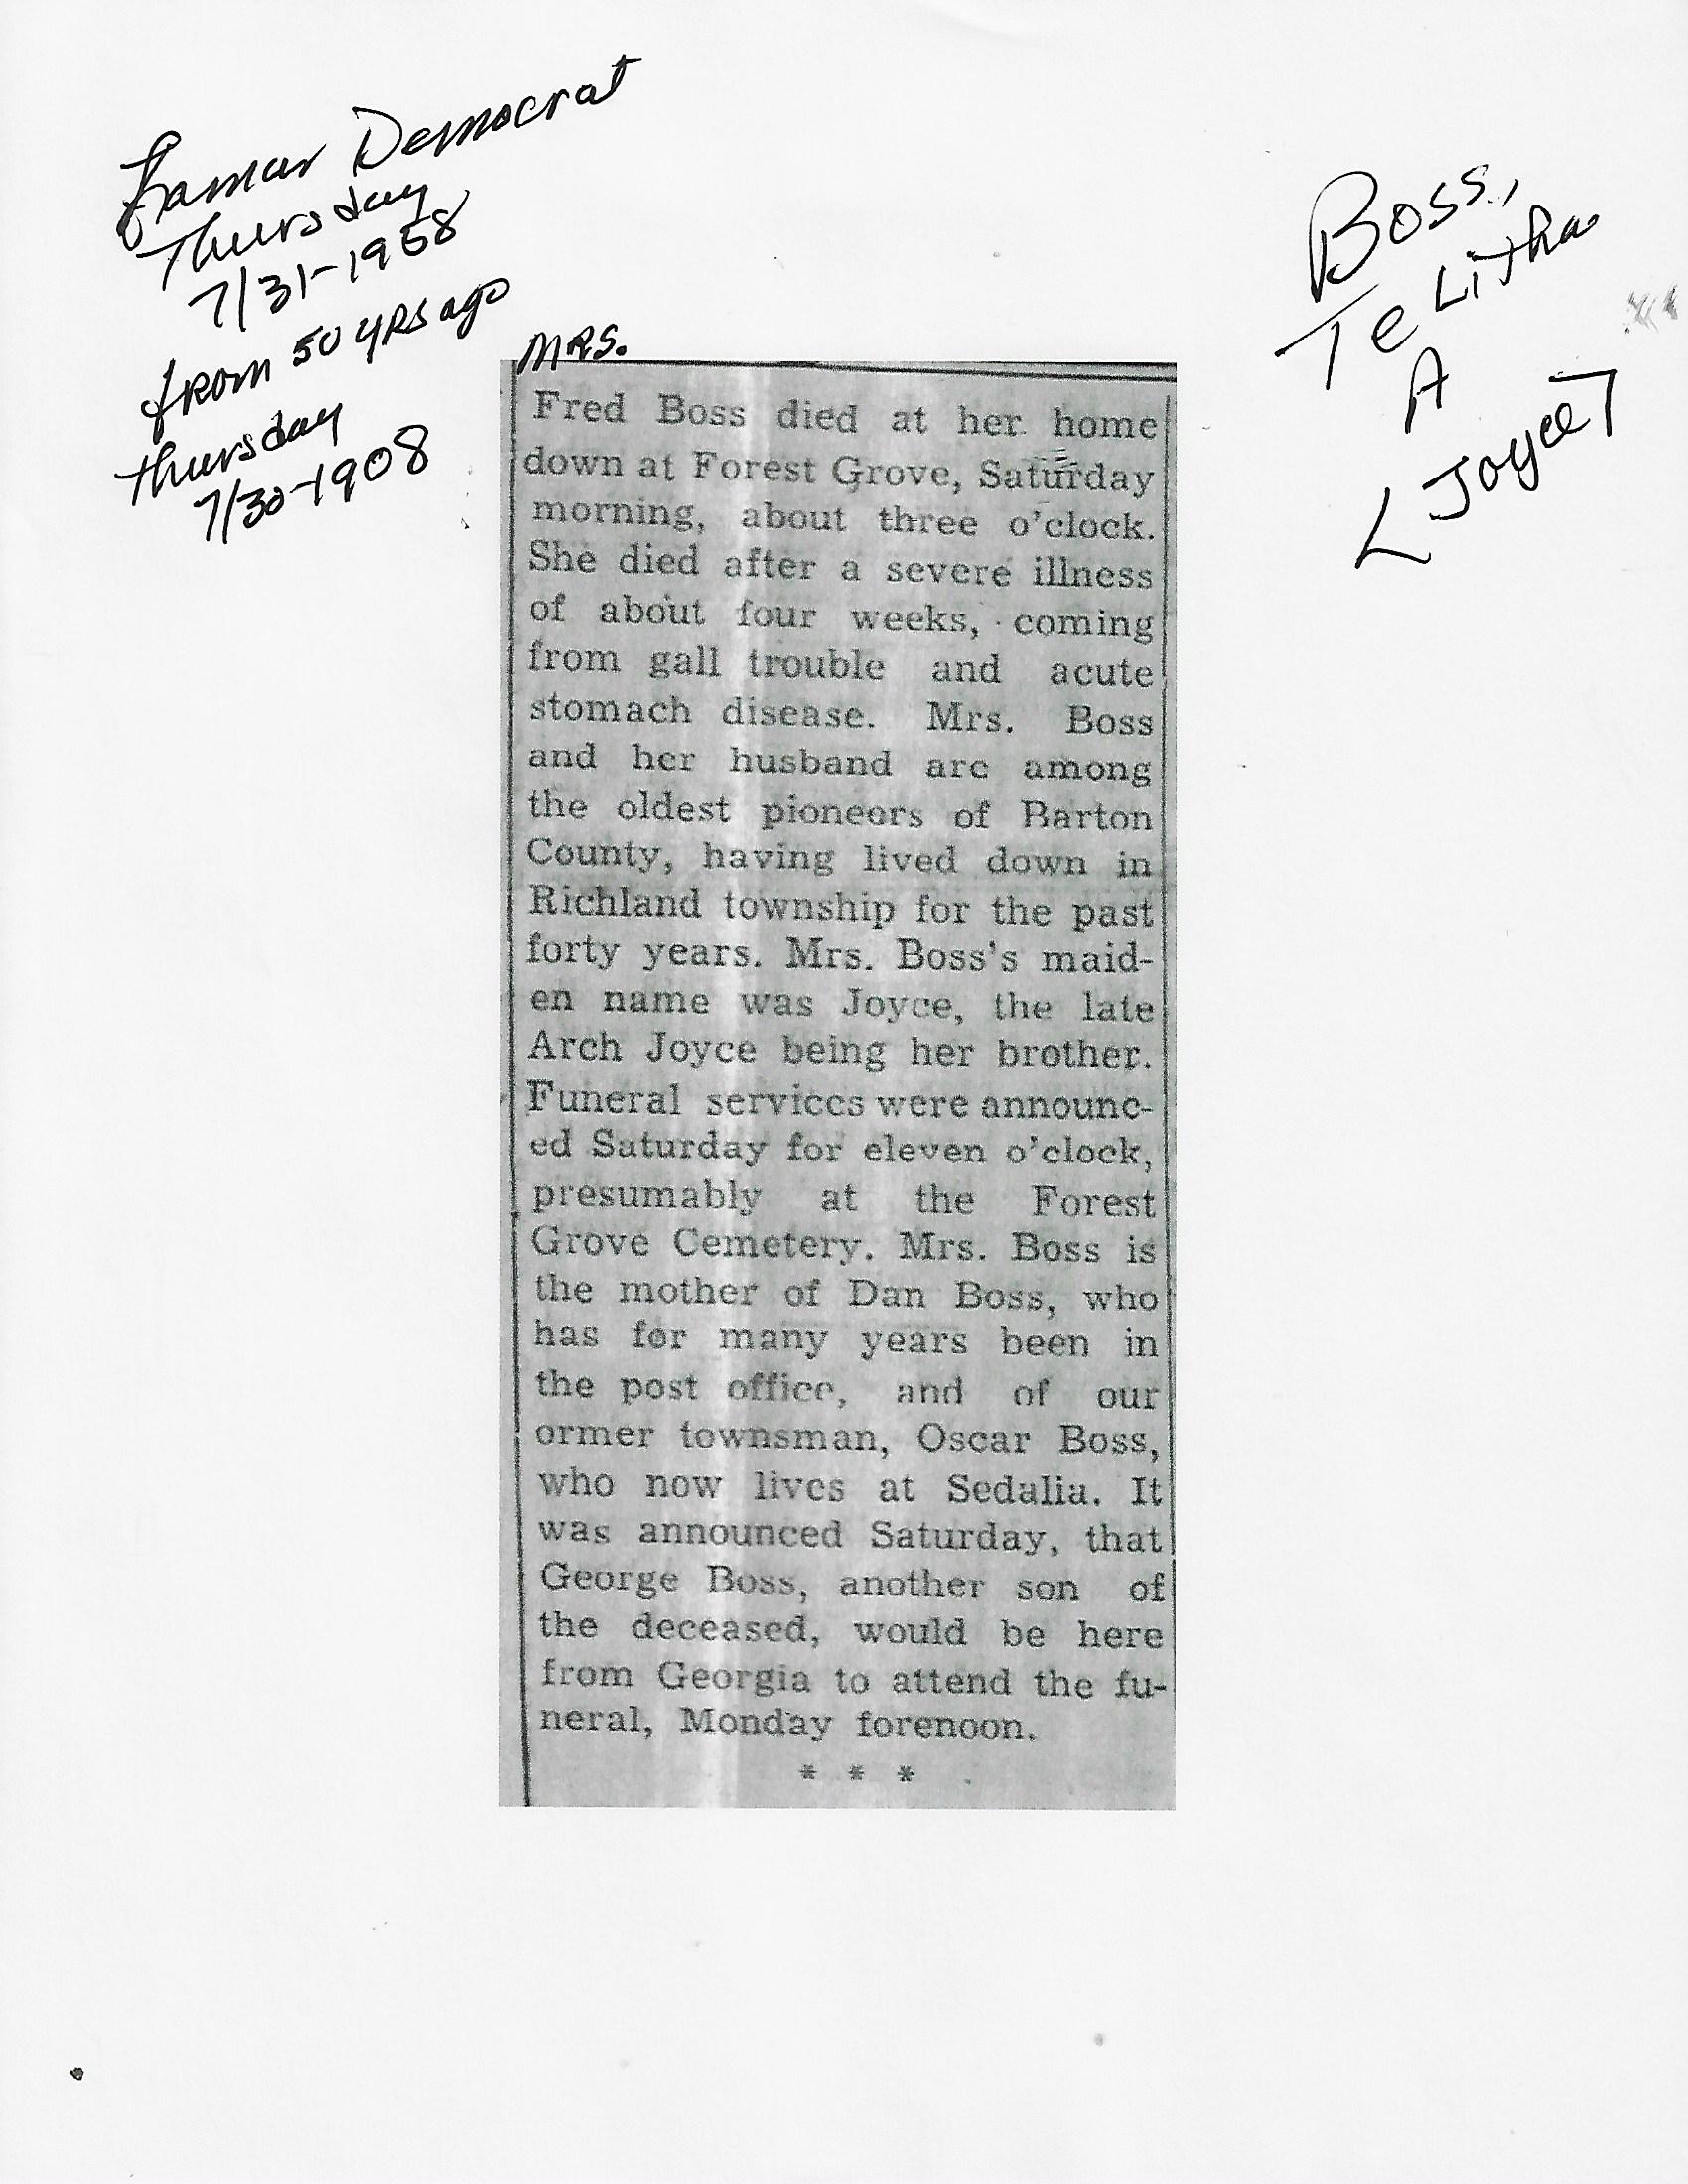 Lamar Democrat
Thursday
7/31-1958
from 50 yrs ago
thursday
7/30-1908
Boss,
Telitha
A
[Joyce]
MRS.
Fred Boss died at her home
down at Forest Grove, Saturday
morning, about three o'clock.
She died after a severe illness
of about four weeks, coming
from gall trouble and acute
stomach disease. Mrs. Boss
and her husband are among
the oldest pioneers of Barton
County, having lived down in
Richland township for the past
forty years. Mrs. Boss's maid-
en name was Joyce, the late
Arch Joyce being her brother.
Funeral services were announc-
ed Saturday for eleven o'clock,
presumably at the Forest
Grove Cemetery. Mrs. Boss is
the mother of Dan Boss, who
has for many years been in
the post office, and of our
ormer townsman, Oscar Boss,
who now lives at Sedalia. It
was announced Saturday, that
George Boss, another son of
the deceased, would be here
from Georgia to attend the fu-
neral, Monday forenoon.
* * *